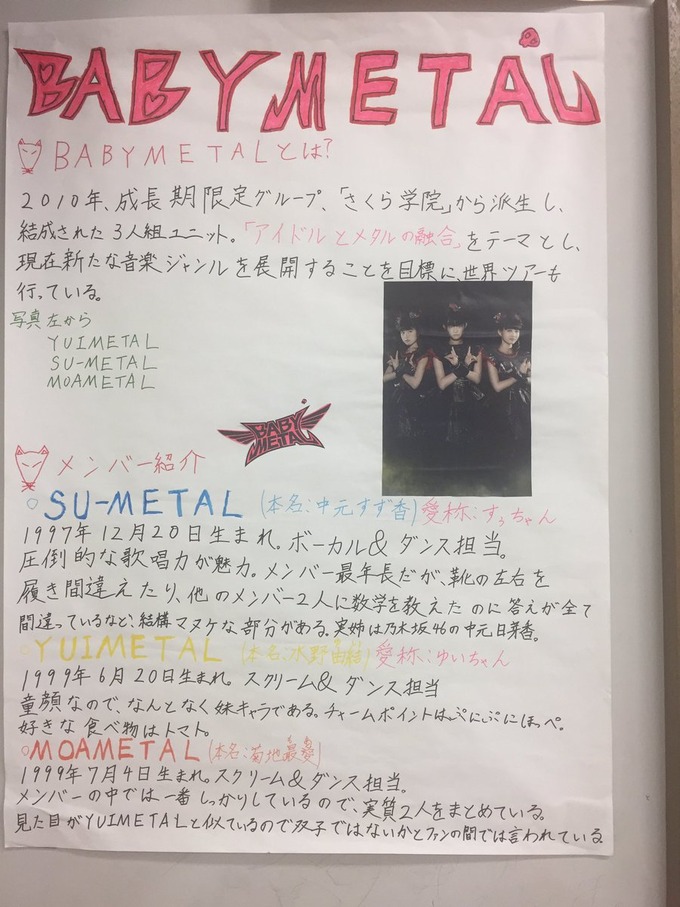 BABYMETAL
BABYMETALとは?
2010年、成長期限定グループ、「さくら学院」から派生し、
結成された3人組ユニット。「アイドルとメタルの融合」をテーマとし、
現在新たな音楽ジャンルを展開することを目標に、世界ツアーも
行っている。
写真左から
YUIMETAL
SU-METAL
MOAMETAL
BABY
METAL
メンバー紹介
○SU-METAL (本名:中元すず香) 愛称:すぅちゃん
1997年12月20日生まれ。ボーカル&ダンス担当。
圧倒的な歌唱力が魅力。メンバー最年長だが、靴の左右を
履き間違えたり、他のメンバー2人に数学を教えたのに答えが全て
間違っているなど、結構マヌケな部分がある。実姉は乃木坂46の中元日芽香。
○YUIMETAL (本名:水野由結) 愛称:ゆいちゃん
1999年6月20日生まれ。スクリーム&ダンス担当
童顔なので、なんとなく妹キャラである。チャームポイントはぷにぷにほっぺ。
好きな食べ物はトマト。
○MOAMETAL (本名:菊地最愛)
1999年7月4日生まれ。スクリーム&ダンス担当。
メンバーの中では一番しっかりしているので、実質2人をまとめている。
見た目がYUIMETALと似ているので双子ではないかとファンの間では言われている。